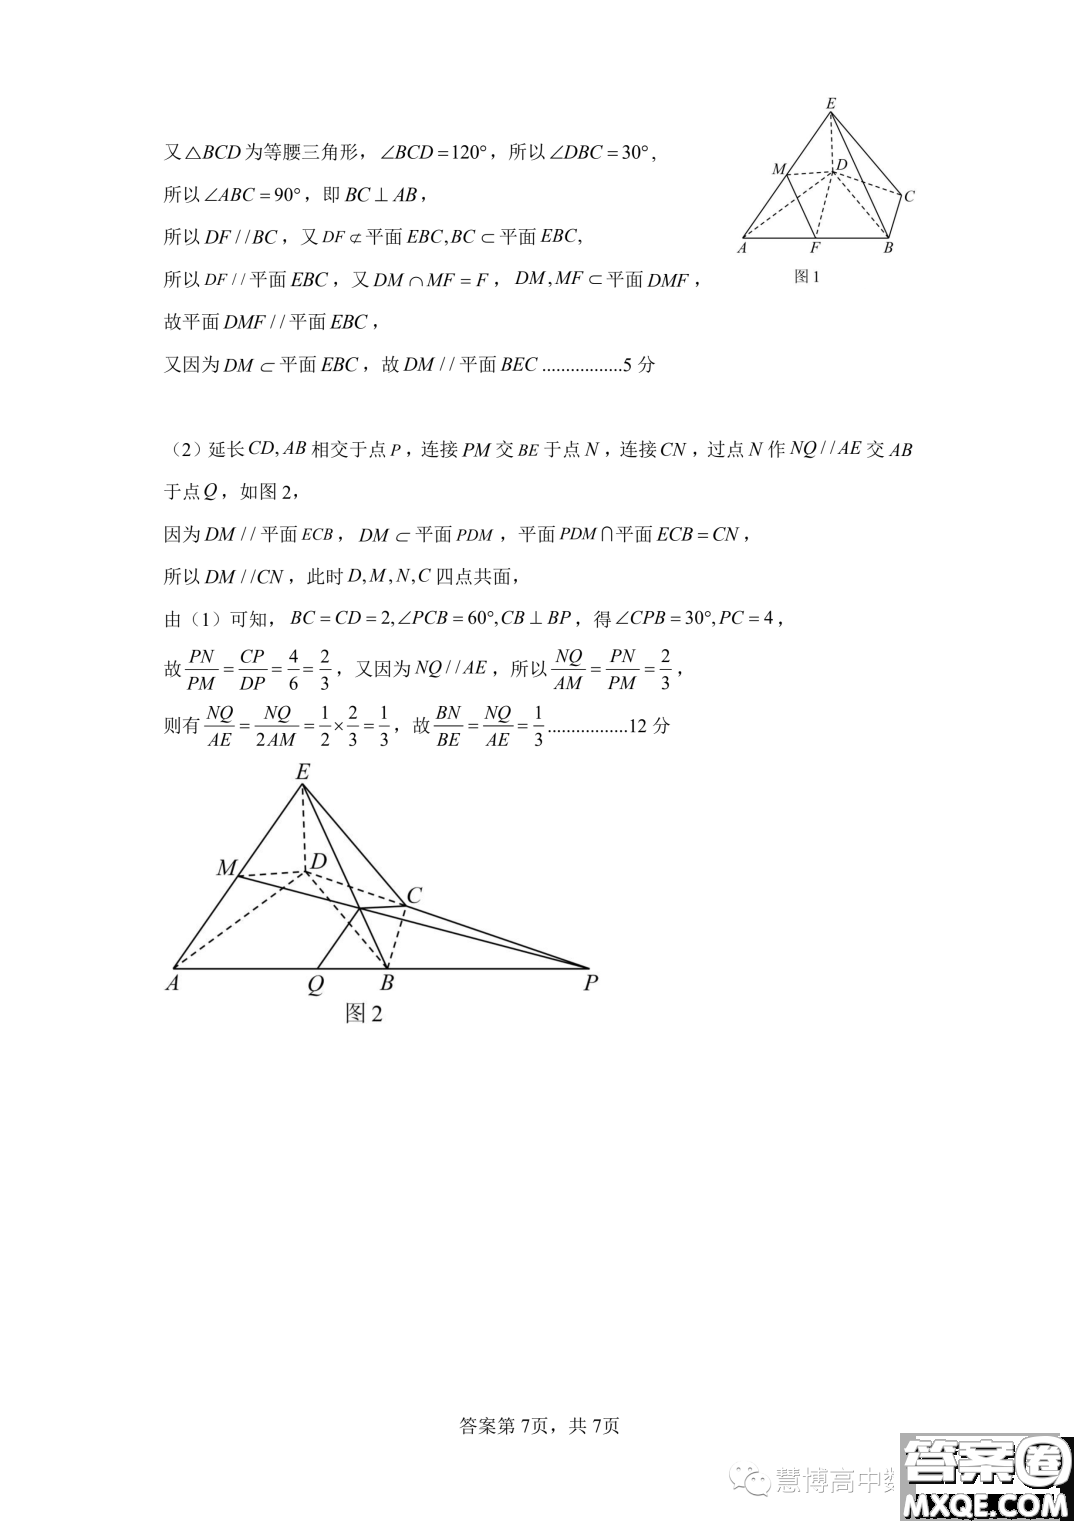 又△BCD为等腰三角形，∠BCD=120°，所以∠DBC=30°,
所以∠ABC=90°，即BC⊥AB，
所以DF//BC，又DF⊄平面EBC,BC⊂平面EBC,
所以DF//平面EBC，又DM∩MF=F，DM,MF⊂平面DMF，
故平面DMF//平面EBC，
又因为DM⊂平面EBC，故DM//平面BEC.................5分
E
M
D
C
A
F
B
图1
（2）延长CD,AB相交于点P，连接PM交BE于点N，连接CN，过点N作NQ//AE交AB
于点Q，如图2，
因为DM//平面ECB，DM⊂平面PDM，平面PDM∩平面ECB=CN，
所以DM//CN，此时D,M,N,C四点共面，
由（1）可知，BC=CD=2,∠PCB=60°,CB⊥BP，得∠CPB=30°,PC=4，
故PN/PM=CP/DP=4/6=2/3，又因为NQ//AE，所以NQ/AM=PN/PM=2/3，
则有NQ/AE=NQ/2AM=1/2×2/3=1/3，故BN/BE=NQ/AE=1/3.................12分
E
M
D
C
A
Q
B
P
图2
答案第7页，共7页
慧博高中数
答案圈
MXQE.COM